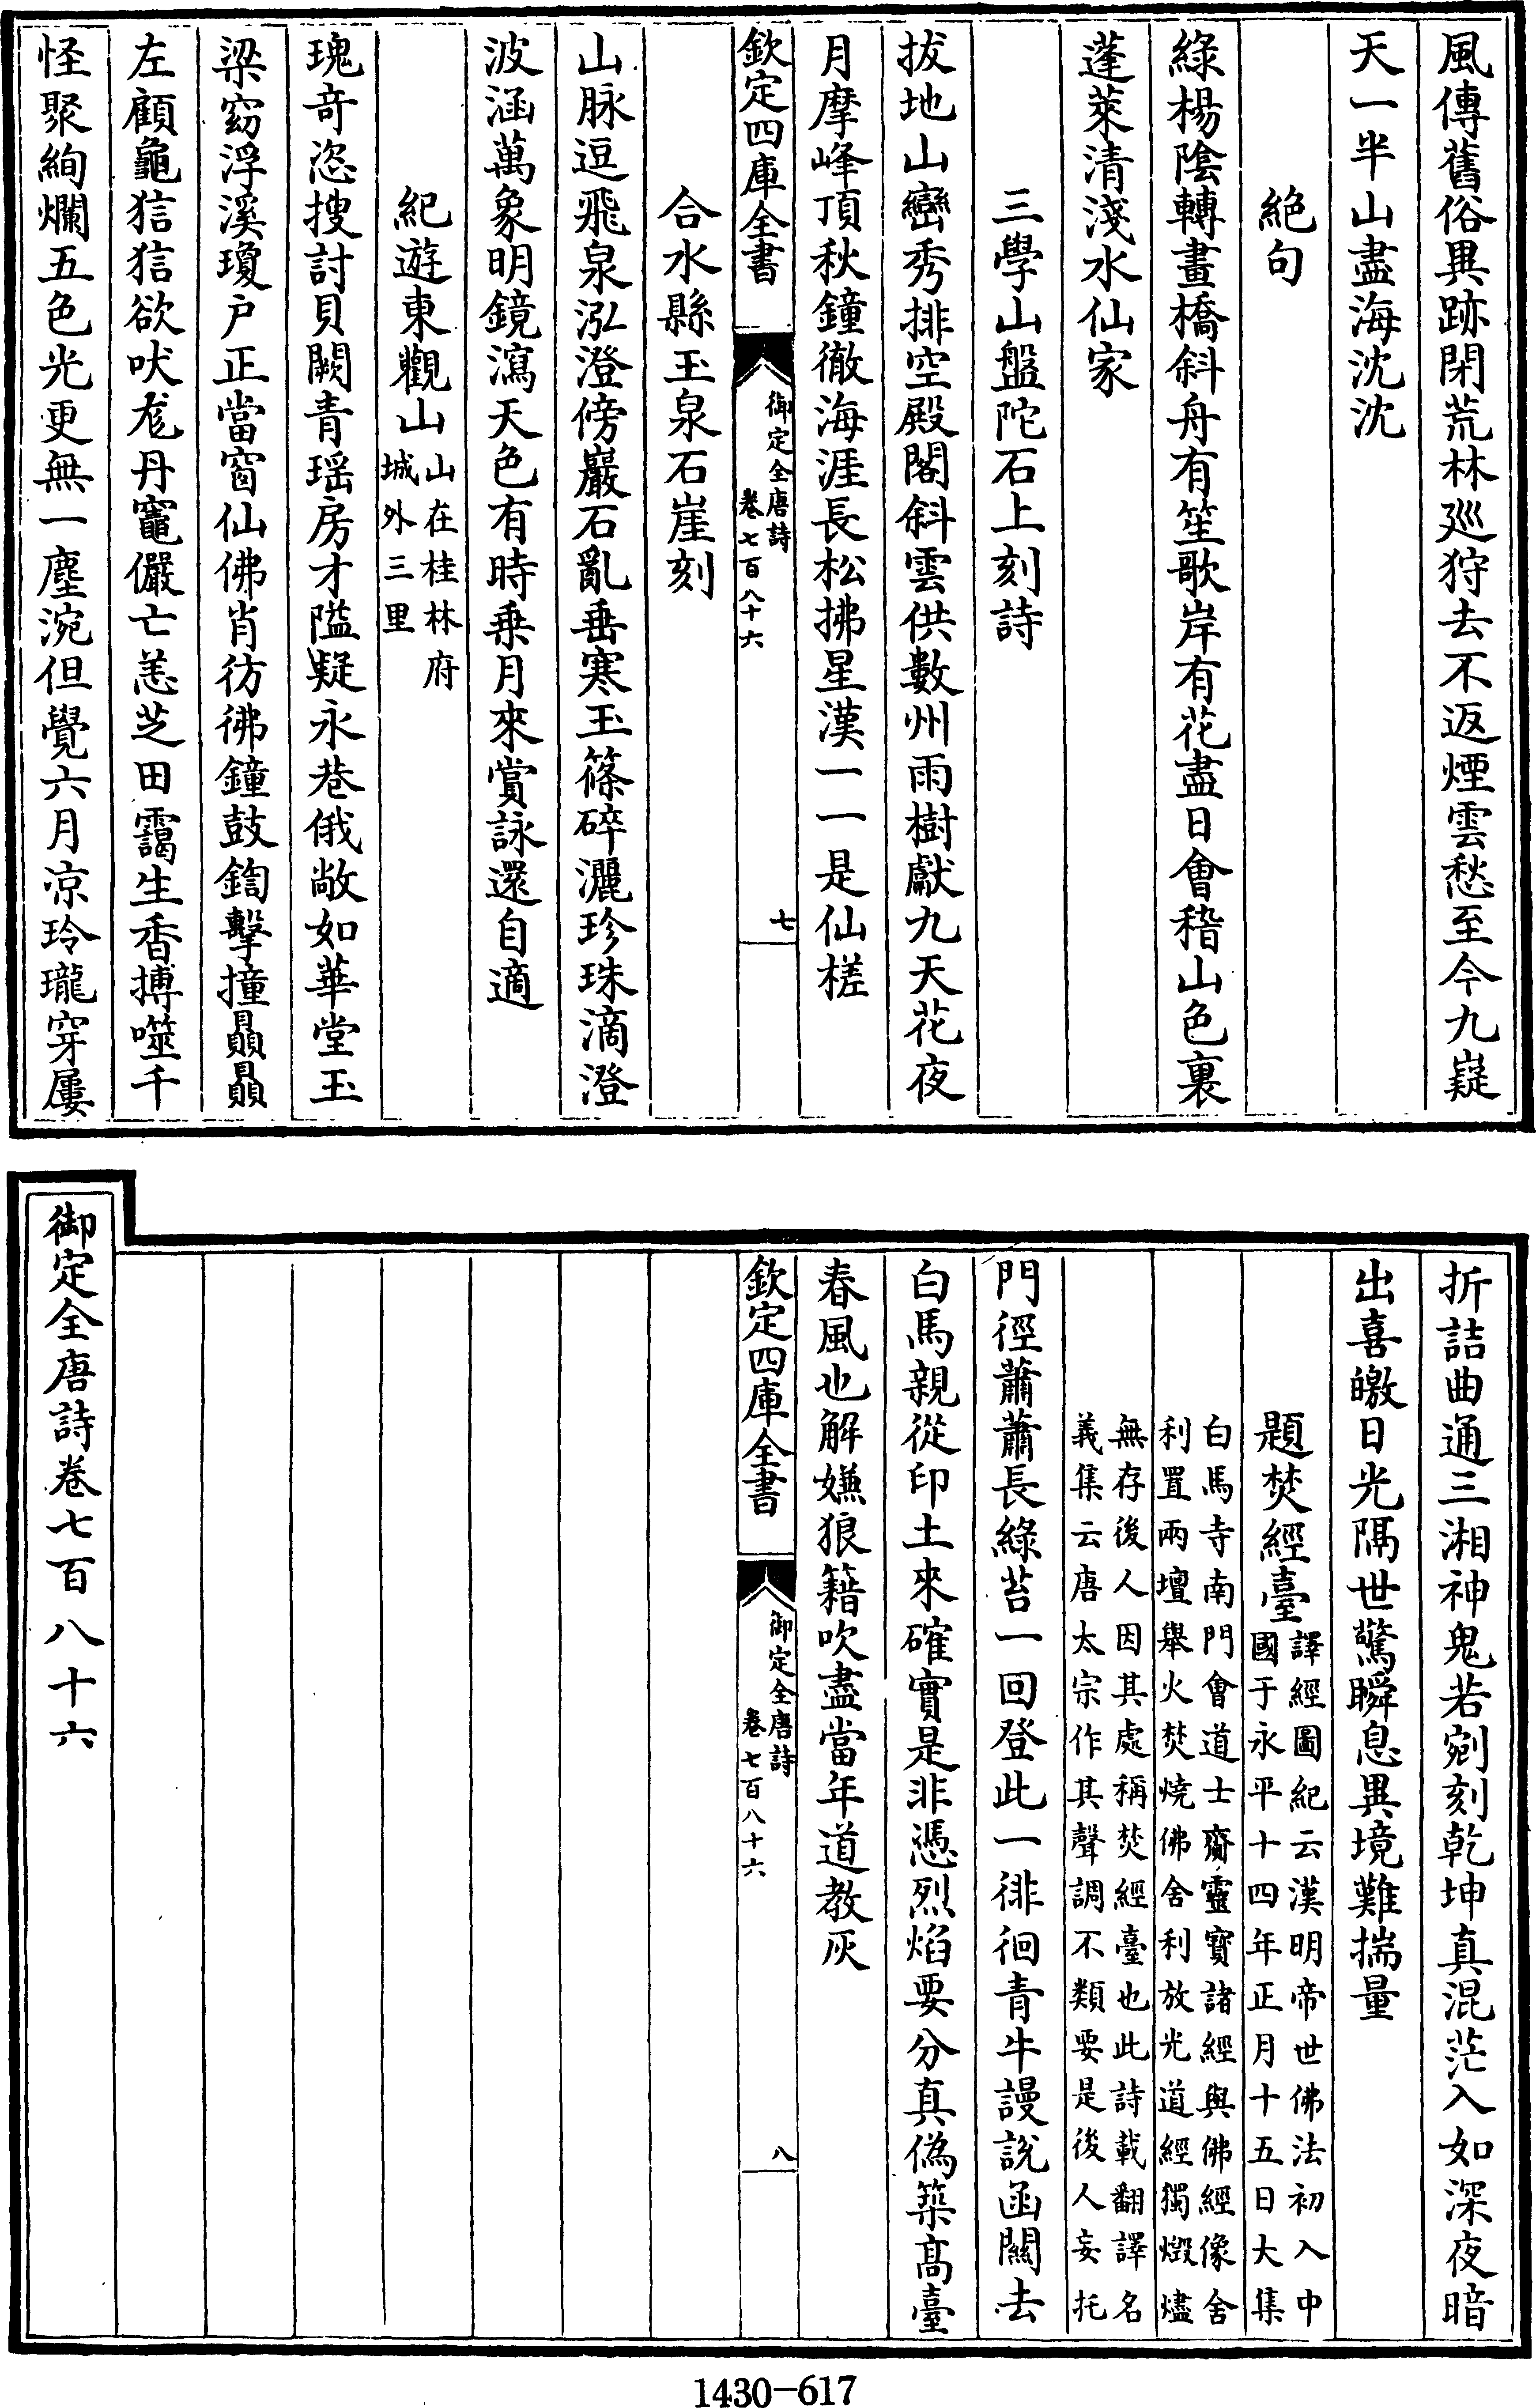 風傳舊俗異跡閉荒林巡狩去不返煙雲愁至今九嶷
天一半山盡海沈沈
絕句
綠楊陰轉畫橋斜舟有笙歌岸有花盡日會稽山色裏
蓬萊清淺水仙家
三學山盤陀石上刻詩
拔地山巒秀排空殿閣斜雲供數州雨樹獻九天花夜
月摩峰頂秋鐘徹海涯長松拂星漢一一是仙槎
欽定四庫全書
御定全唐詩
卷七百八十六
七
合水縣玉泉石崖刻
山脉逗飛泉泓澄傍巖石亂垂寒玉篠碎灑珍珠滴澄
波涵萬象明鏡瀉天色有時乗月來賞詠還自適
紀遊東觀山山在桂林府
城外三里
瑰奇恣搜討貝闕青瑶房才隘疑永巷俄敞如華堂玉
梁窈浮溪瓊戶正當窗仙佛肖彷彿鐘鼓鍧擊撞贔贔
左顧龜狺狺欲吠尨丹竈儼亡恙芝田靄生香搏噬千
怪聚絢爛五色光更無一塵涴但覺六月凉玲瓏穿屢
折詰曲通三湘神鬼若剜刻乾坤真混茫入如深夜暗
出喜皦日光隔世驚瞬息異境難揣量
題焚經臺譯經圖紀云漢明帝世佛法初入中
國于永平十四年正月十五日大集
白馬寺南門會道士齎靈寶諸經與佛經像舍
利置兩壇舉火焚燒佛舍利放光道經獨燬燼
無存後人因其處稱焚經臺也此詩載翻譯名
義集云唐太宗作其聲調不類要是後人妄托
門徑蕭蕭長綠苔一回登此一徘徊青牛謾說函關去
白馬親從印土來確實是非憑烈焰要分真偽築高臺
春風也解嫌狼籍吹盡當年道教灰
欽定四庫全書
御定全唐詩
卷七百八十六
八
御定全唐詩卷七百八十六
1430-617